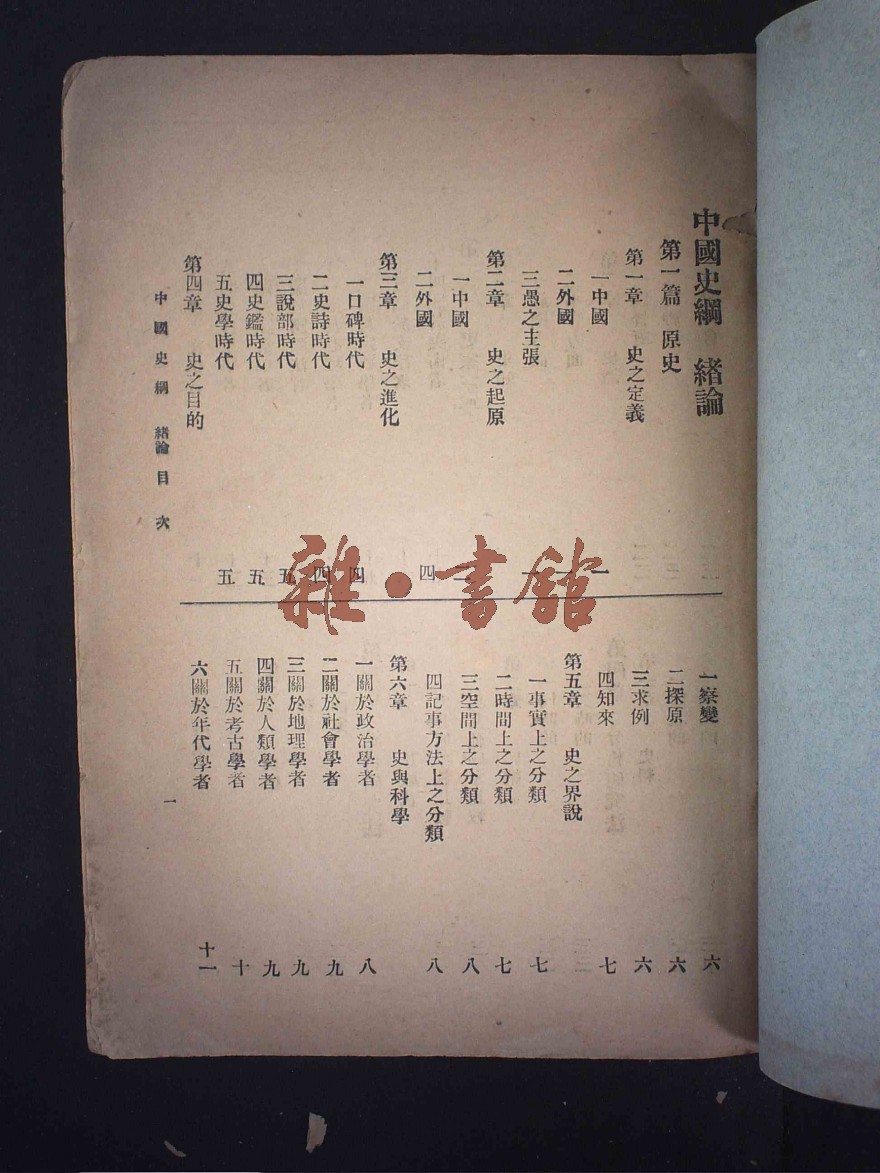 中國史綱 緒論
第一篇 原史
第一章 史之定義
一中國 一
二外國 一
三愚之主張 一
第二章 史之起原
一中國
二外國 四
第三章 史之進化
一口碑時代 四
二史詩時代 四
三說部時代 五
四史鑑時代 五
五史學時代 五
第四章 史之目的
一察變 六
二探原 六
三求例 六
四知來 七
第五章 史之界說
一事實上之分類 七
二時間上之分類 七
三空間上之分類 八
四記事方法上之分類 八
第六章 史與科學
一關於政治學者 八
二關於社會學者 九
三關於地理學者 九
四關於人類學者 九
五關於考古學者 十
六關於年代學者 十一
中國史綱 緒論目次 一
雜·書館